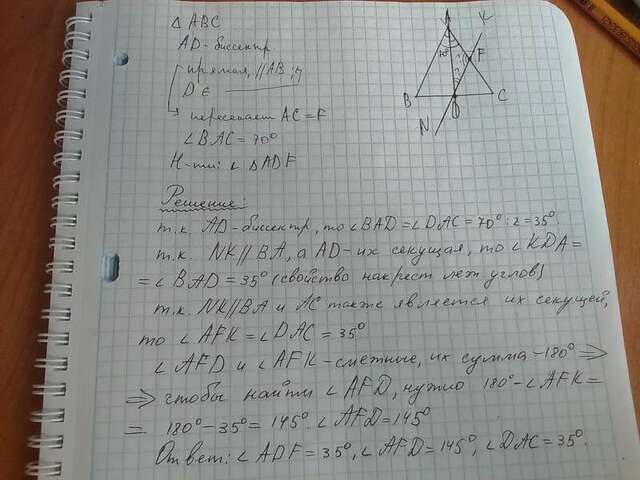 Δ ABC
AD-биссектр
прямая, || AB ;
D ∈
пересекает AC = F
∠BAC = 70°
Н-ти: ∠ ΔADF
A
K
70°
F
B
C
D
N
Решение:
т.к. AD-биссектр, то ∠BAD = ∠DAC = 70°:2 = 35°.
т.к. NK || BA, а AD-их секущая, то ∠KDA =
= ∠BAD = 35° (свойство накрест леж углов)
т.к. NK || BA и AC также является их секущей,
то ∠AFK = ∠DAC = 35°
∠AFD и ∠AFK-смежные, их сумма - 180° ⇒
⇒ чтобы найти ∠AFD, нужно 180° - ∠AFK =
= 180° - 35° = 145°. ∠AFD = 145°
Ответ: ∠ADF = 35°, ∠AFD = 145°, ∠DAC = 35°.